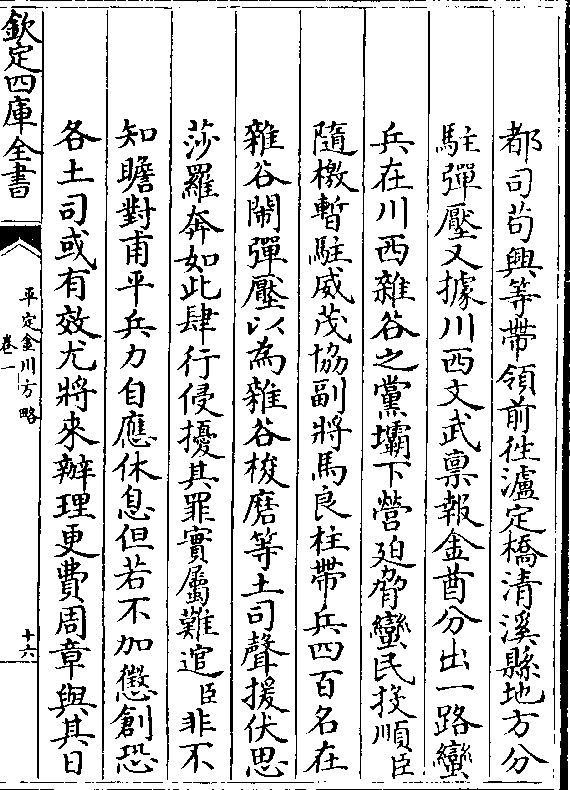 都司苟興等帶領前徃瀘定橋清溪縣地方分
駐彈壓又據川西文武禀報金酋分出一路蠻
兵在川西雜谷之黨壩下營廹脅蠻民投順臣
隨檄暫駐威茂協副將馬良柱帶兵四百名在
雜谷鬧彈壓以為雜谷梭磨等土司聲援伏思
莎羅奔如此肆行侵擾其罪實屬難逭臣非不
知瞻對甫平兵力自應休息但若不加懲創恐
各土司或有效尤將來辦理更費周章與其日
欽定四庫全書
平定金川方略
卷一
十六